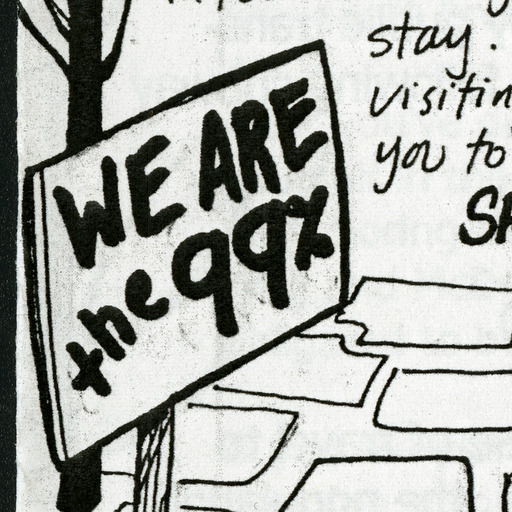 stay.
visitin
you to
WE ARE
the 99%